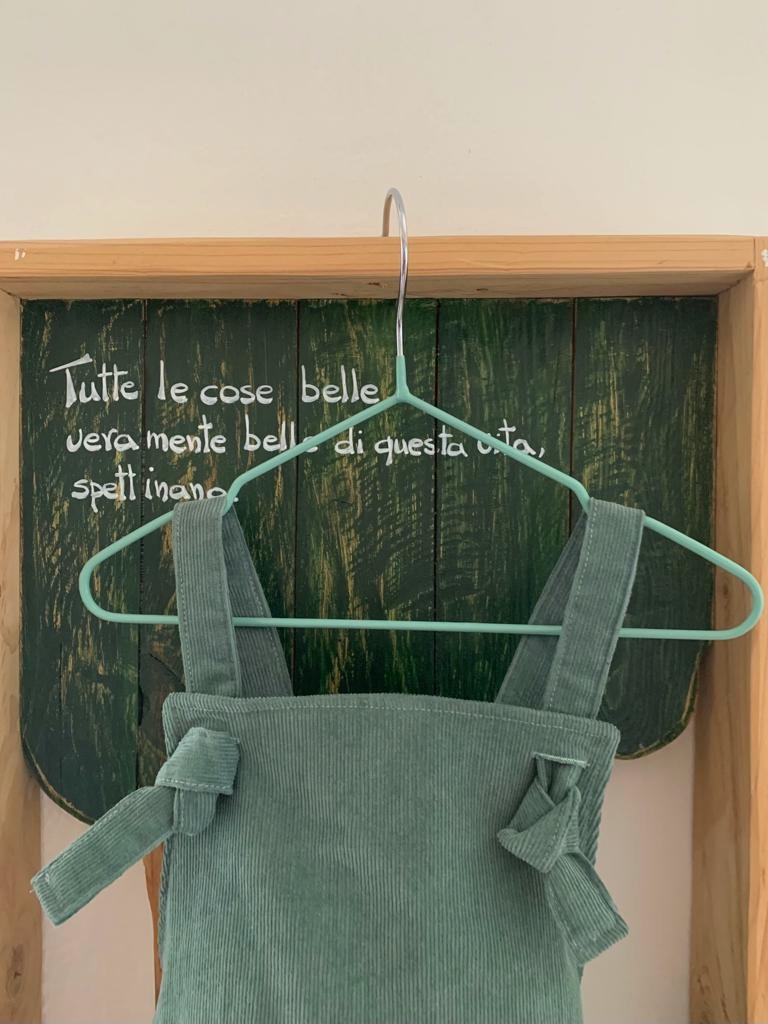 Tutte le cose belle
veramente belle di questa vita,
spettinano.